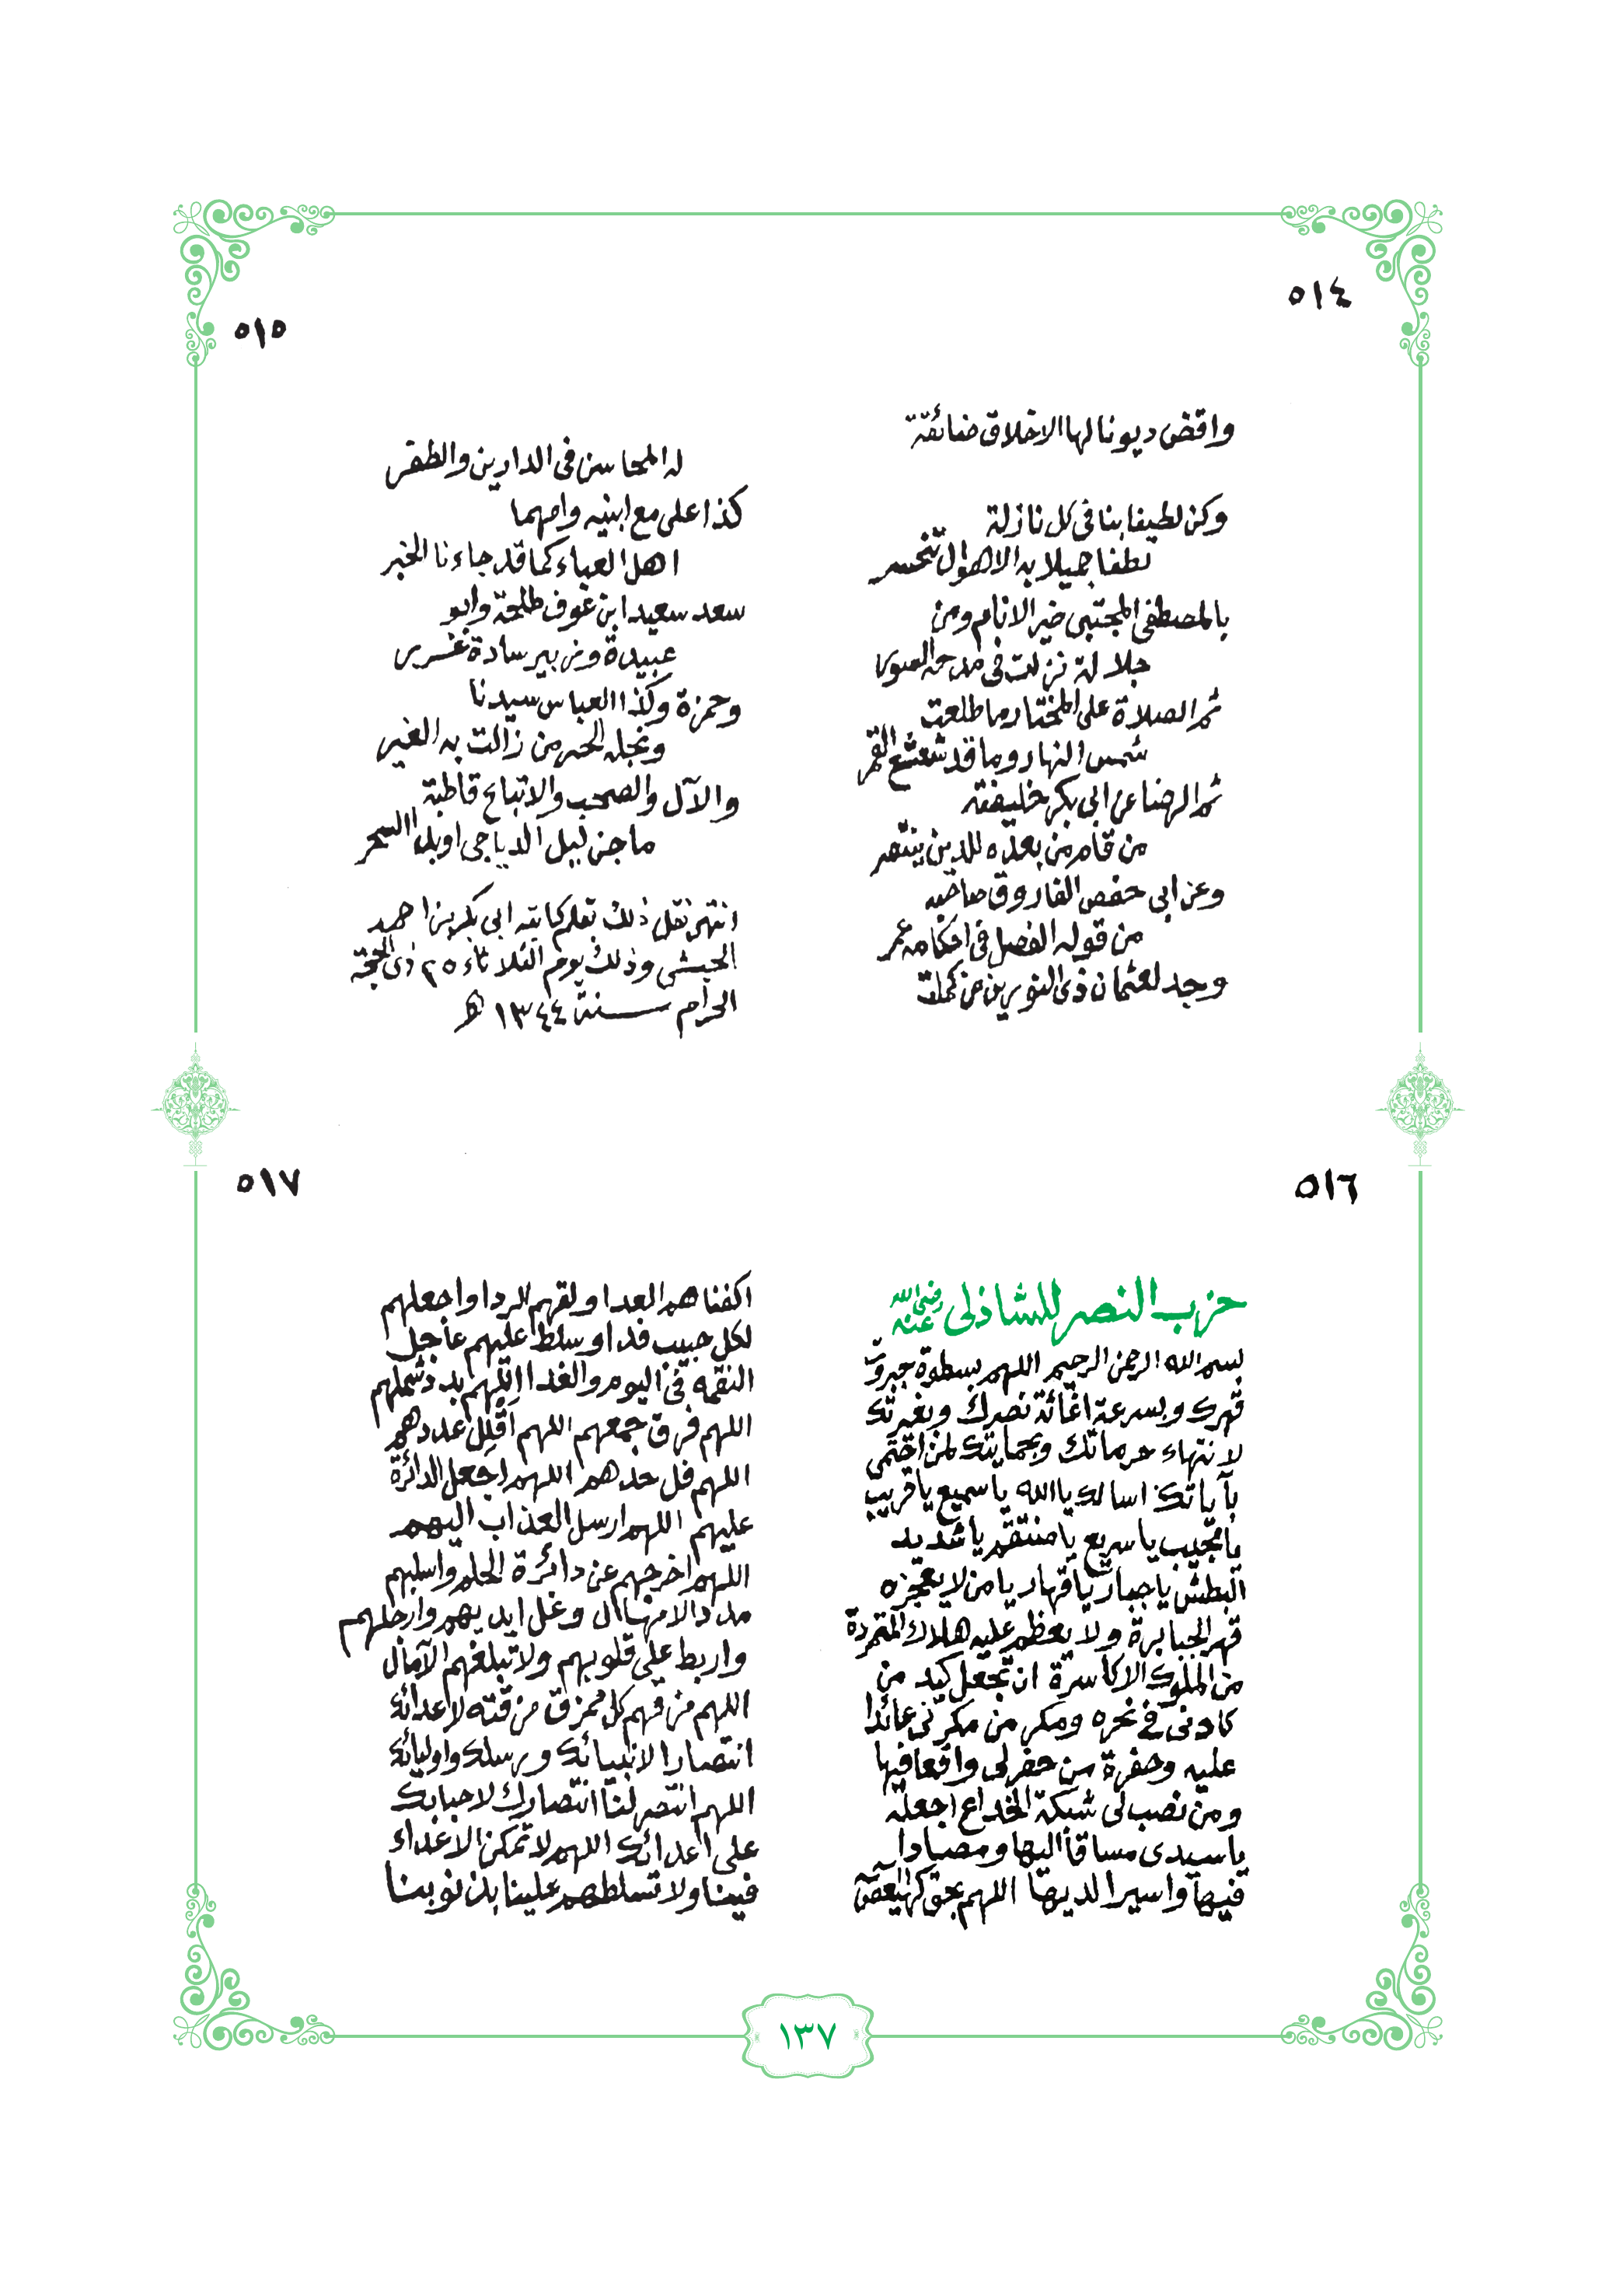 ٥١٤
واقض ديونا لها الاخلاق ضائقة
وكن لطيفا بنا في كل نازلة
لطفا جميلا به الاهوال تنحسر
بالمصطفى المجتبى خير الانام ومن
جلالة نزلت في مدحه السور
ثم الصلاة على المختار ما طلعت
شمس النهار وما قد شعشع القمر
ثم الرضا عن ابي بكر خليفته
من قام من بعده للدين ينتصر
وعن ابي حفص الفاروق صاحبه
من قوله الفصل في احكامه عمر
وجد لعثمان ذي النورين من كملت
٥١٥
له المحاسن في الدارين والظفر
كذا علي مع ابنيه وامهما
اهل العباء كما قد جاءنا الخبر
سعد سعيد ابن عوف طلحة وابو
عبيدة وزبير سادة غرر
وحمزة وكذا العباس سيدنا
ونجله الحبر من زالت به الغير
والآل والصحب والاتباع قاطبة
ما جن ليل الدياجي او بدا السحر
انتهى نقل ذلك بقلم كاتبه ابي بكر بن احمد
الحبشي وذلك يوم الثلاثاء ٢٥ ذي الحجة
الحرام سنة ١٣٤٤ هـ
٥١٦
حزب النصر للشاذلي رضي الله عنه
بسم الله الرحمن الرحيم اللهم بسطوة جبروت
قهرك وبسرعة اغاثة نصرك وبغيرتك
لانتهاء حرماتك وبحمايتك لمن احتمى
بآياتك اسالك يا الله يا سميع يا قريب
يا مجيب يا سريع يا منتقم يا شديد
البطش يا جبار يا قهار يا من لا يعجزه
قهر الجبابرة ولا يعظم عليه هلاك المتمردة
من الملوك الاكاسرة ان تجعل كيد من
كادني في نحره ومكر من مكر بي عائدا
عليه وحفرة من حفر لي واقعا فيها
ومن نصب لي شبكة الخداع اجعله
يا سيدي مساقا اليها ومصادا
فيها واسيرا لديها اللهم بحق كهيعص
٥١٧
اكفنا هم العدا ولقهم الردا واجعلهم
لكل حبيب فدا وسلط عليهم عاجل
النقمه في اليوم والغدا اللهم بدد شملهم
اللهم فرق جمعهم اللهم اقلل عددهم
اللهم فل حدهم اللهم اجعل الدائرة
عليهم اللهم ارسل العذاب اليهم
اللهم اخرجهم عن دائرة الحلم واسلبهم
مدد الامهال وغل ايديهم وارحلهم
واربط على قلوبهم ولا تبلغهم الآمال
اللهم مزقهم كل ممزق مزقته لاعدائك
انتصارا لانبيائك ورسلك واوليائك
اللهم انتصر لنا انتصارك لاحبابك
على اعدائك اللهم لا تمكن الاعداء
فينا ولا تسلطهم علينا بذنوبنا
١٣٧